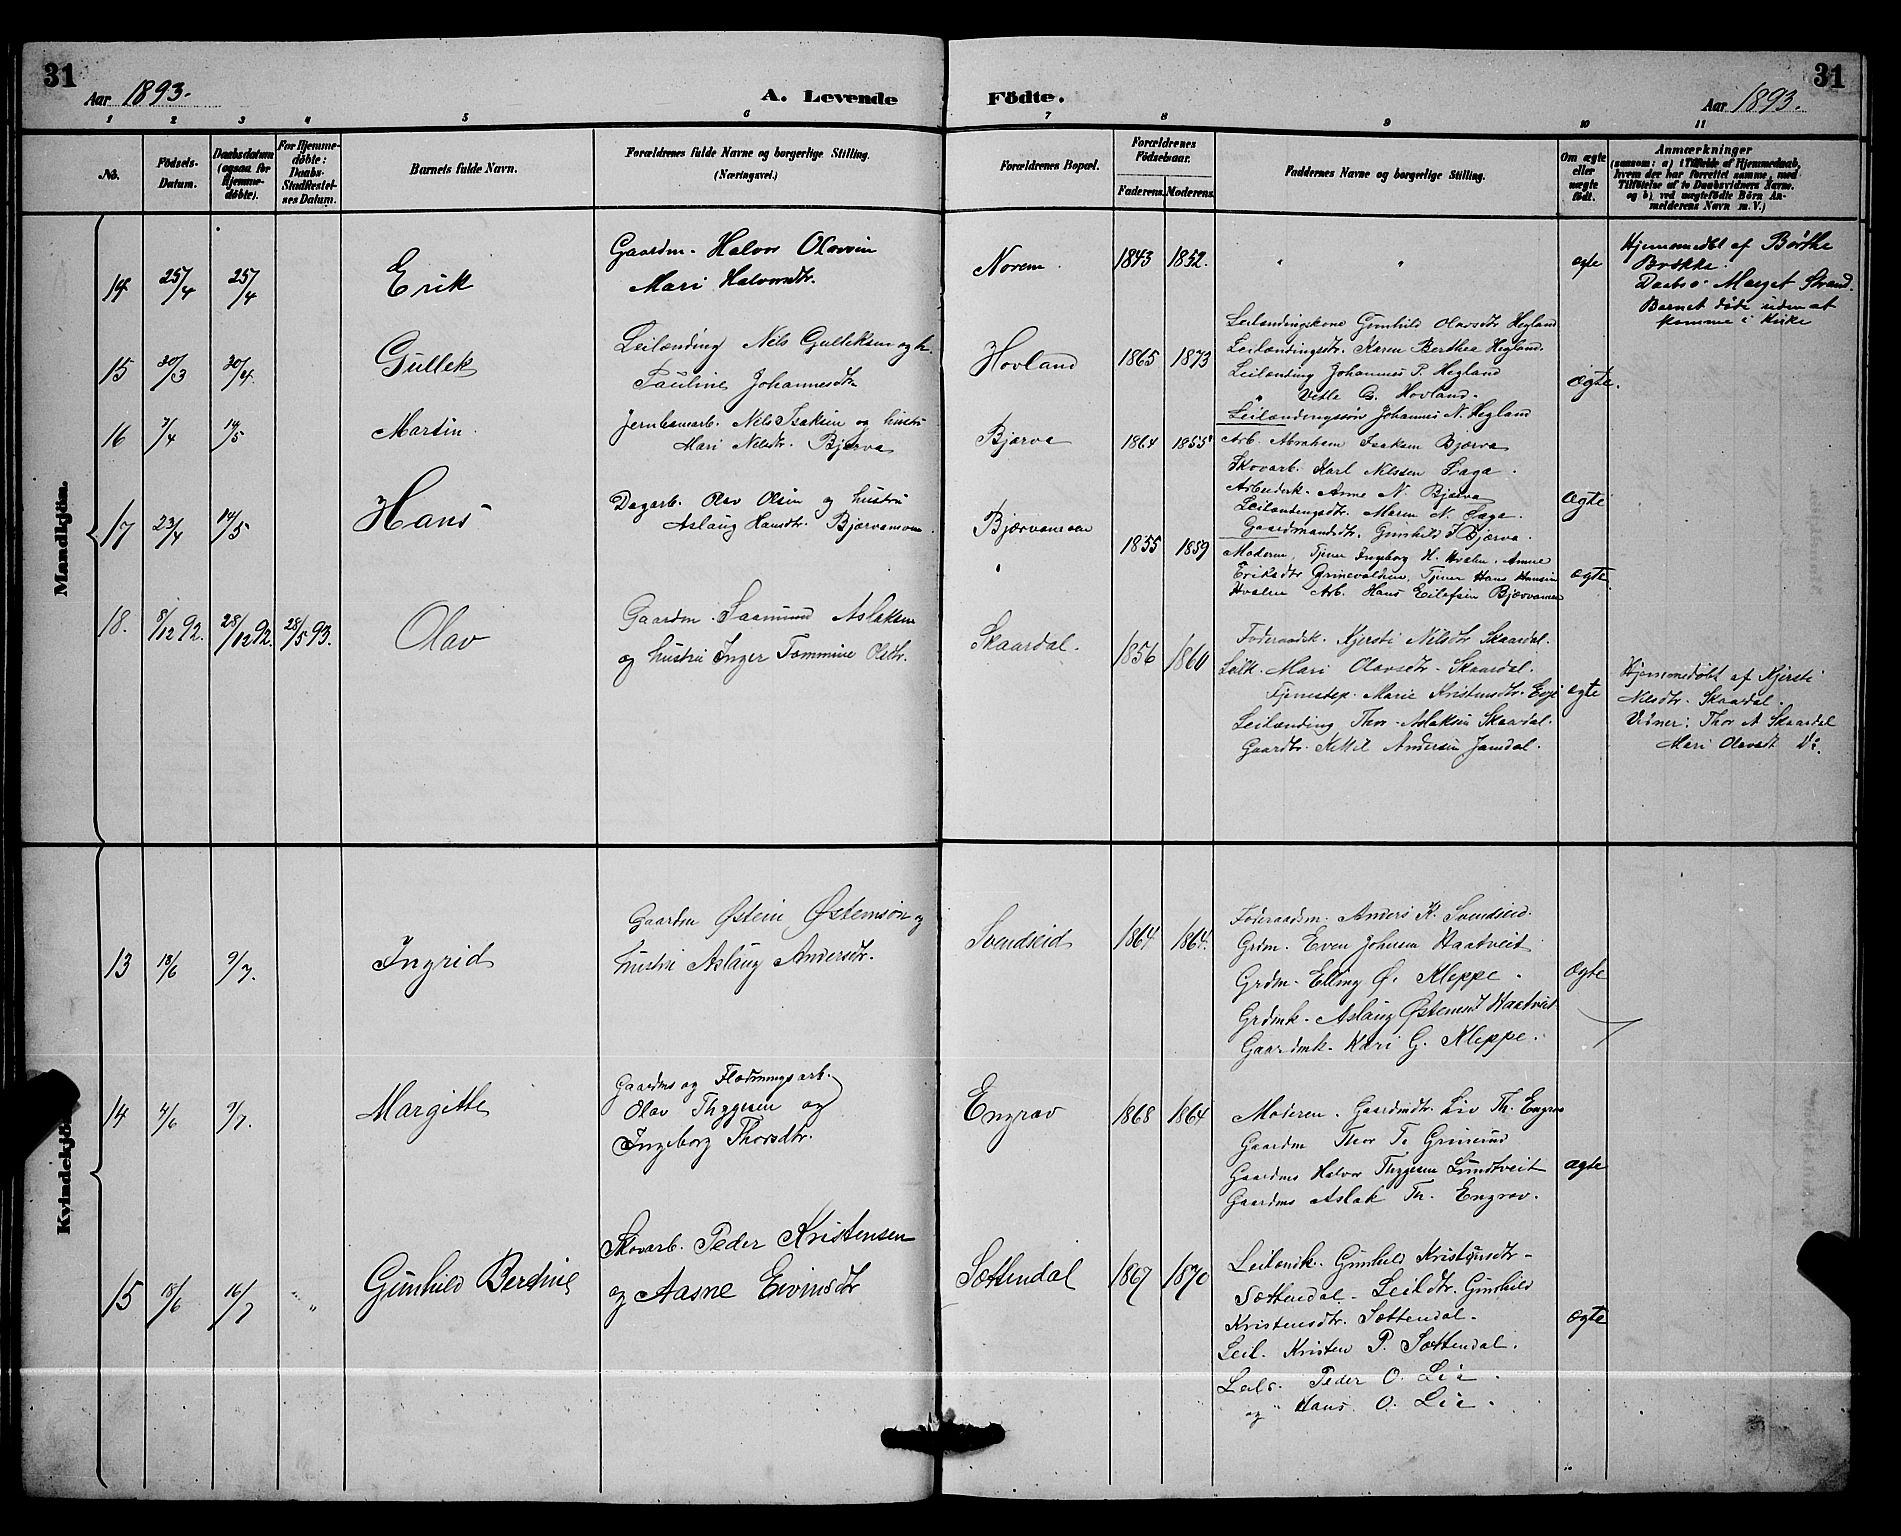 31
Aar 1893.
A. Levende
Födte.
Aar 1893.
31
1 2 3 4 5 6 7 8 9 10 11
No.
Födsels-
Datum.
Daabsdatum
(ogsaa for
Hjemme-
döbte).
For Hjemme-
döbte:
Daabs-
Stadfestel-
ses Datum.
Barnets fulde Navn.
Forældrenes fulde Navne og borgerlige Stilling.
(Næringsvei.)
Forældrenes Bopæl.
Forældrenes
Födselsaar.
Faderens. Moderens.
Faddernes Navne og borgerlige Stilling.
Om ægte
eller
uægte
födt.
Anmærkninger
(saasom: a) i Tilfælde af Hjemmedaab,
hvem der har forrettet samme, med
Tilföielse af to Daabsvidners Navne.
og b) ved uægtefödte Börn An-
melderens Navn m. V.)
Mandkjön.
14 25/4 25/4 Erik
Gaardm. Halvor Olavsen
Mari Halvorsdtr.
Norem. 1843 1852.
" "
ægte
Hjemmedöbt af Börthe
Brokka.
Daabsv. Marget Strand.
Barnet döde uden at
komme i Kirke
15 20/3 30/4 Gullek
Leilænding Nils Gulleksen og h.
Pauline Johannesdtr
Hovland 1865 1873
Leilændingskone Gunhild Olavsdtr Hegland
Leilændingsdtr. Karen Berthea Hegland.
Leilænding Johannes P. Hegland
" Vetle G. Hovland.
Leilændingssön Johannes N. Hegland
ægte.
16 7/4 14/5 Martin
Jernbanearb. Nils Isaksen og hustru
Mari Nilsdtr. Bjørva
Bjørva 1864 1855
Arb. Abraham Isaksen Bjørva
Skovarb. Karl Nilssen Saga.
Arbeiderk. Anne N. Bjørva
Leilændingsdtr. Maren N. Saga.
Gaardmandsdtr. Gunhild I Bjørva.
ægte
17 23/4 14/5 Hans
Dagarb. Olav Olsen og hustru
Aslaug Hansdtr. Bjørvamoen.
Bjørvamoen 1855 1859
Moderen, Tjener Ingeborg H. Hvalen, Anne
Eriksdtr Grinevolden, Tjener Hans Hansen
Hvalen Arb. Hans Eilefsen Bjørvamoen
ægte
18. 8/12 92. 28/12 92. 28/5 93. Olav
Gaardm. Saamund Aslaksen
og hustru Inger Tommine Olsdtr.
Skaardal. 1856 1860
Föderaadsk. Kjersti Nilsdtr Skaardal.
Leilk. Mari Olavsdtr. Skaardal.
Tjenestep. Marie Kristensdtr. Evje
Leilænding Thor Aslaksen Skaardal.
Gaardbr. Kittil Andersen Jamdal.
ægte
Hjemmedöbt af Kjersti
Nilsdtr. Skaardal.
Vidner: Thor A Skaardal
Mari Olavsdt Do.
Kvindekjön.
13 18/6 9/7. Ingrid
Gaardm Østein Østensøn og
hustru Aslaug Andersdtr.
Svendseid 1864 1864.
Föderaadsm. Anders K. Svendseid.
Grdm. Even Johnsen Haatveit
Grdm. Elling Ø. Kleppe.
Grdmk. Aslaug Østensdt Haatveit
Gaardmk. Kari G. Kleppe.
ægte
14 4/6 9/7. Margithe
Gaardm og Flødningsarb.
Olav Thygesen og
Ingeborg Thorsdtr.
Engrav 1868 1864
Moderen. Gaardmdtr. Liv Th. Engrav
Gaardm Thor T. Grinerud
Gaardms Halvor Thygesen Lundtveit
Gaardms Aslak Th. Engrav.
ægte
15 18/6 16/7 " Gunhild Berdine
Skovarb. Peder Kristensen
og Aasne Eivindsdtr
Sættendal 1867 1870
Leilændk. Gunhild Kristensdtr-
Sættendal - Leildtr. Gunhild
Kristensdtr. Sættendal.
Leil. Kristen P. Sættendal.
Leils. Peder O. Lie.
og " Hans O. Lie.
ægte